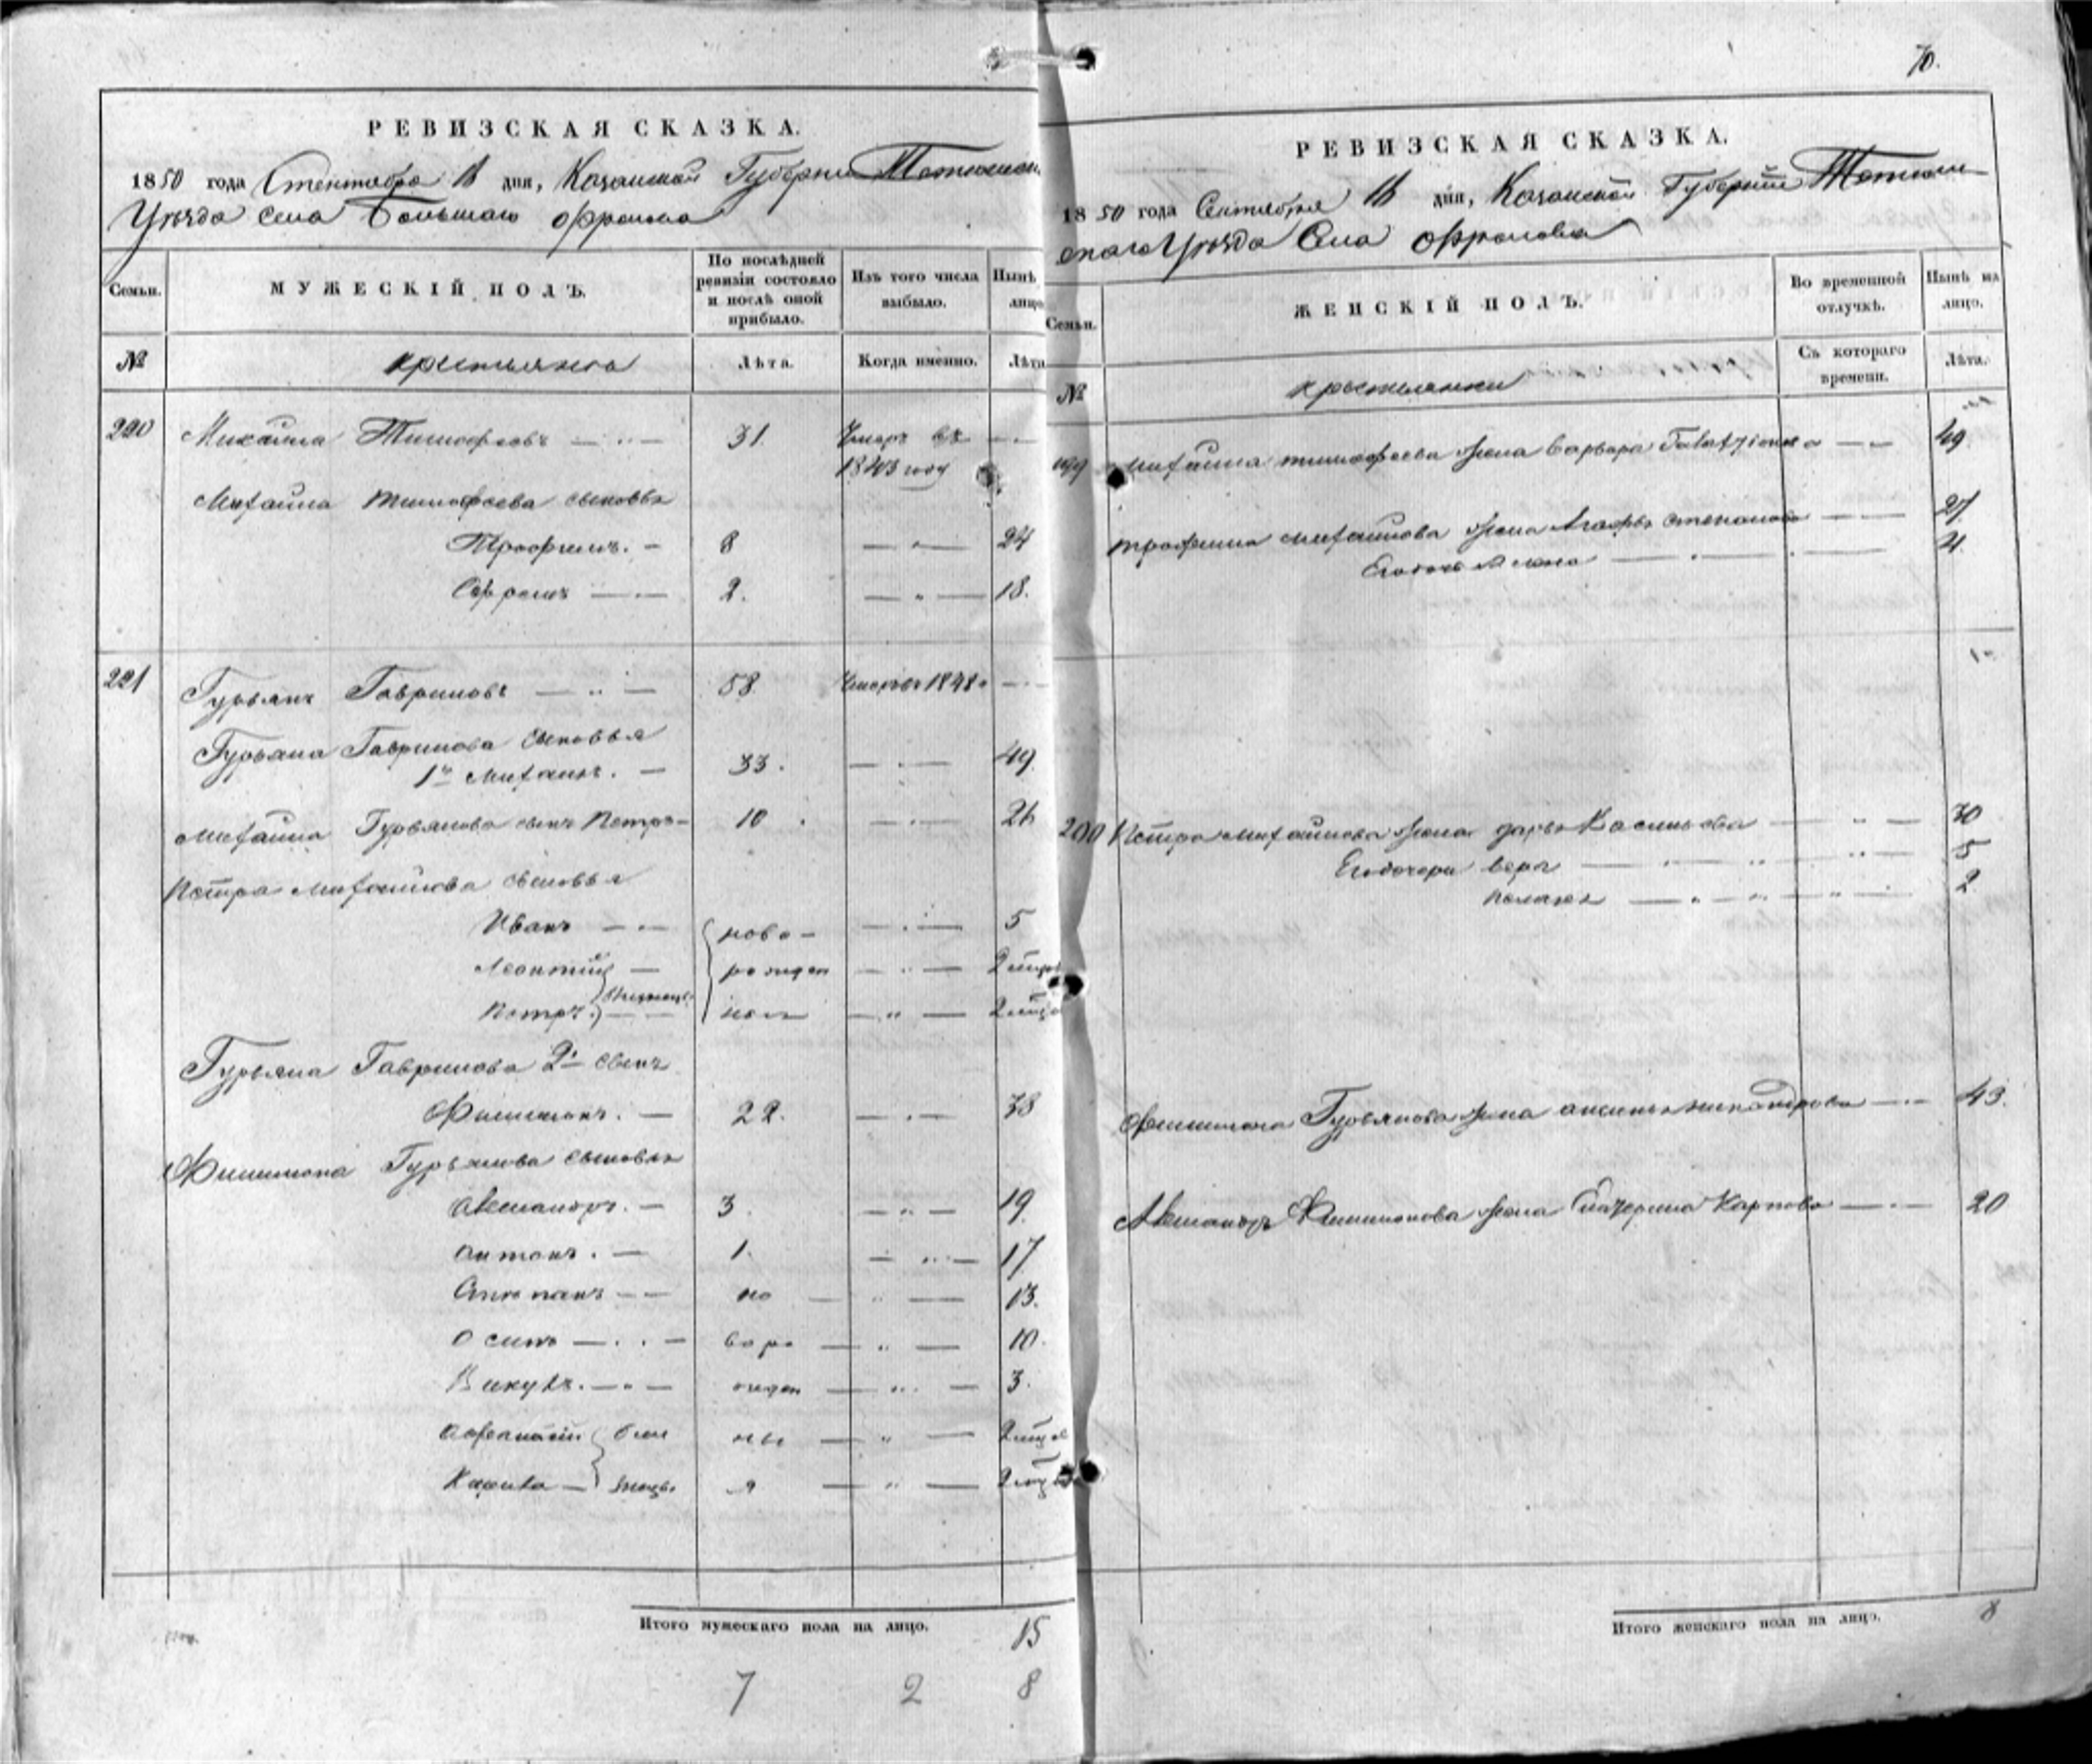 70.
РЕВИЗСКАЯ СКАЗКА.
1850 года Сентября дня, Казанской Губернии
Уѣзда села Большаго
Семьи. МУЖЕСКІЙ ПОЛЪ. По послѣдней ревизіи состояло и послѣ оной прибыло. Изъ того числа выбыло. Нынѣ лицо
№ крестьяне Лѣта. Когда именно. Лѣта
220 Михайла Тимофеевъ — 31. Умеръ въ —
1843 году
Михайла Тимофеева сыновья
Трофимъ. — 8 — 24
Софронъ — 2. — 18.
221 Гурьянъ Гавриловъ — 58 1848 —
Гурьяна Гаврилова сыновья
1й Михайла. — 33. — 49.
Михайла Гурьянова сынъ Петръ — 10. — 26
Петра Михайлова сыновья
Иванъ — ново- — 5
Леонтій — рожден —
Петръ. — ные —
Гурьяна Гаврилова 2й сынъ
Филимонъ. — 22. — 38
Филимона Гурьянова сыновья
Александръ. — 3. — 19.
Антонъ. — 1. — 17
Степанъ — но — 13.
Осипъ — воро — 10.
Викулъ. — жден — 3.
Афанасій бли ны —
знецы я —
Итого мужескаго пола на лицо. 15
7 2 8
РЕВИЗСКАЯ СКАЗКА.
1850 года Сентября дня, Казанской Губерніи Тетюш-
скаго Уѣзда Села
Семьи. ЖЕНСКІЙ ПОЛЪ. Во временной отлучкѣ. Нынѣ на лицо.
№ крестьянки Съ котораго времени. Лѣта.
199 Михайла Тимофеева жена Варвара — 49
Трофима Михайлова жена Агафья Степанова — 21
Его дочь — 4
200 Петра Михайлова жена Дарья Касьянова — 30
Его дочери Вера — 5
Пелагея — 2
Филимона Гурьянова жена Аксинья Никандрова — 43.
Александра Филимонова жена Катерина Карпова — 20
Итого женскаго пола на лицо. 8